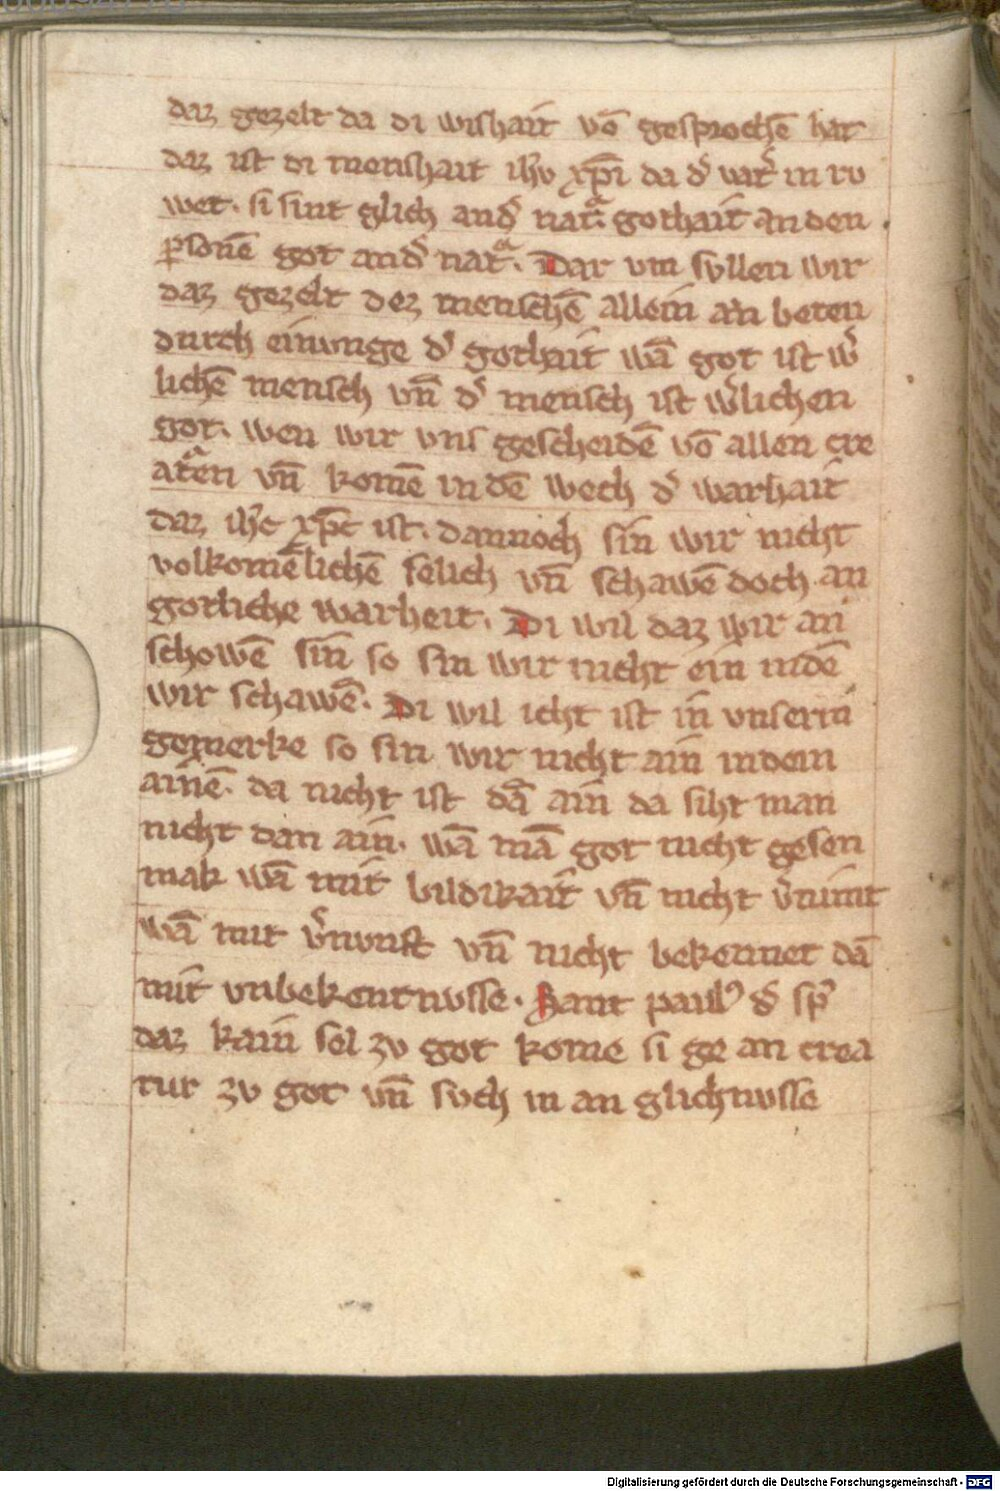 daz gezelt da di wishait vō gesprochē hat
daz ist di menshait ih̄v xp̄i da d᷎ vat᷎ in rv
wet · si sint glich and᷎ natᷓ gothait an den
ꝑsonē got and᷎ natᷓ · Dar vm svllen wir
daz gezelt dez menschē allein an beten
durch einunge d᷎ gothait wā got ist w᷎
lichē mensch vn̄ d᷎ mensch ist w᷎lichen
got · wen wir vns gescheidē vō allen cre
atᷓen vn̄ komē in dē wech d᷎ warhait
daz ih̄c xp̄c ist · dannoch sin wir nicht
volkomēlichē selich vn̄ schawē doch an
gotliche warheit · Di wil daz wir an
schowē sin so sin wir nicht ein in dē
wir schawē · Di wil icht ist in vnserm
gemerke so sin wir nicht ain in dem
ainē · da nicht ist dā ain da siht man
nicht dan ain · wā mā got nicht gesen
mak wā mit bildikait vn̄ nicht v᷎nimt
wā mit v᷎nunft vn̄ nicht bekennet dā
mit vnbekentnvsse · Sant paulꝰ d᷎ sp᷎
daz kain sel zv got kome si ge an crea
tur zv got vn̄ svch in an glichnvsse
Digitalisierung gefördert durch die Deutsche Forschungsgemeinschaft - DFG